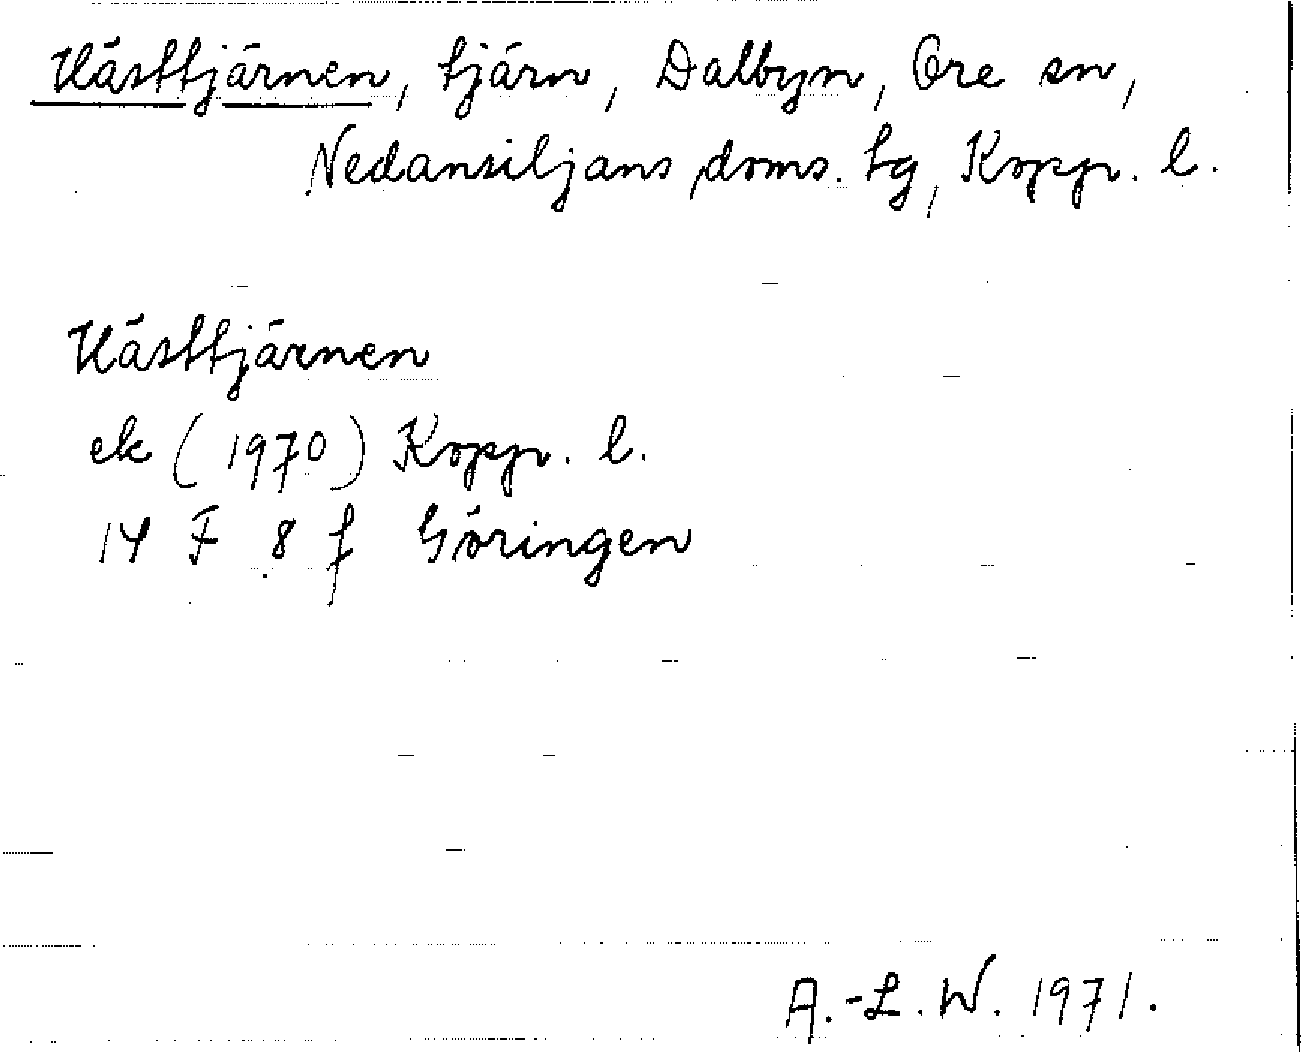 Västtjärnen, tjärn, Dalbyn, Ore sn,
Nedansiljans doms. tg, Koppr. l.
Västtjärnen
ek (1970) Koppr. l.
14 F 8 f Göringen
A.-L. W. 1971.